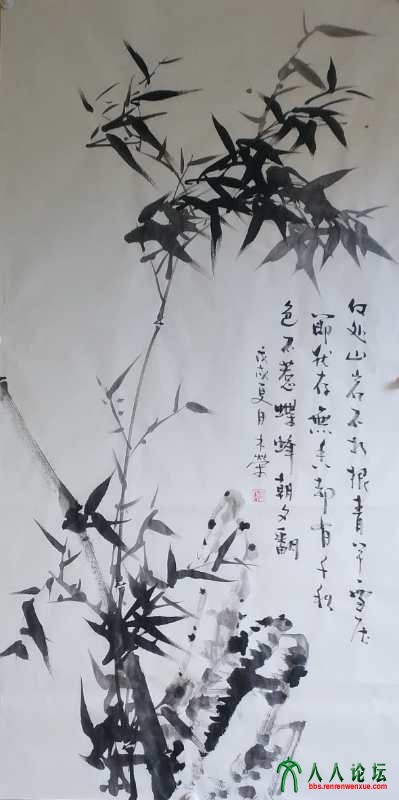 何处山岩不扎根青竿雪压
節犹存無香却有千秋
色不惹蝶蜂朝夕翻
戊戌夏月木榮
人人论坛
bbs.renrenwenxue.com